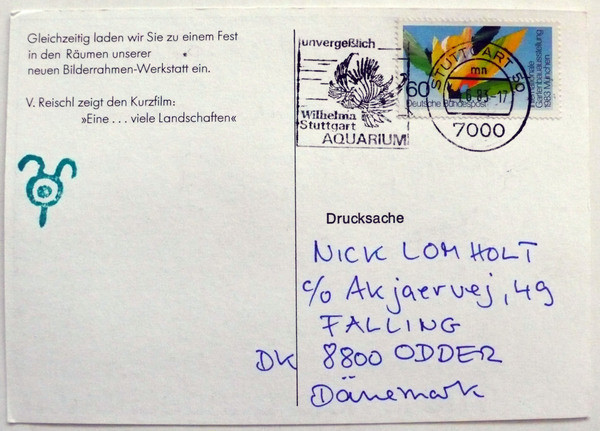 Gleichzeitig laden wir Sie zu einem Fest
in den Räumen unserer
neuen Bilderrahmen-Werkstatt ein.
V. Reischl zeigt den Kurzfilm:
»Eine . . . viele Landschaften«
unvergeßlich
Wilhelma
Stuttgart
AQUARIUM
STUTTGART 50
mn
6.83-17
7000
60
Deutsche Bundespost
Gartenbauausstellung
1983 München
Drucksache
NICK LOMHOLT
c/o Akjaervej, 49
FALLING
DK 8800 ODDER
Dänemark